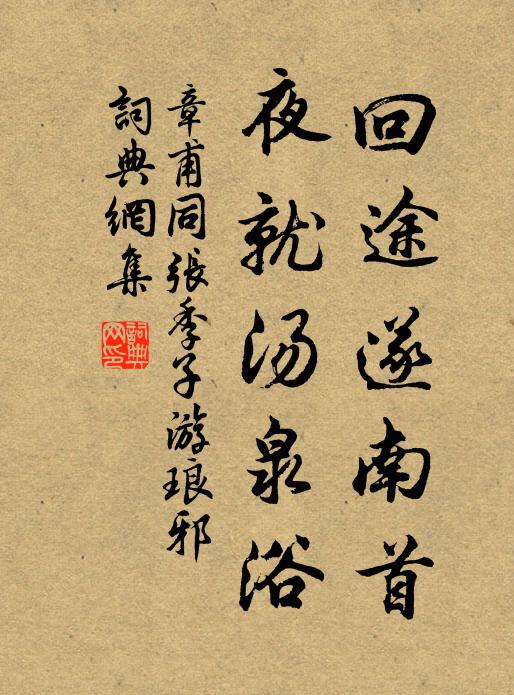 回途遂南首
夜就汤泉浴
章甫同張季子游琅邪
詞典網集
詞典网印